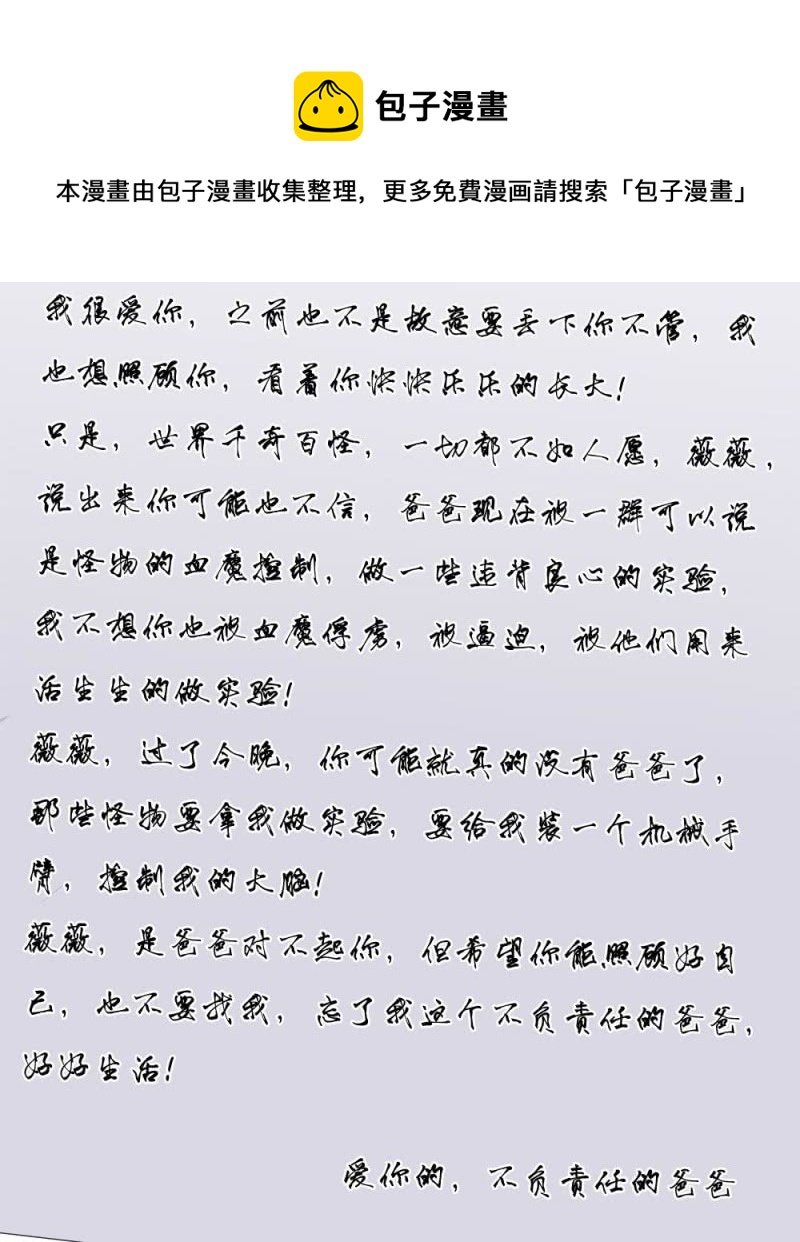 包子漫畫
本漫畫由包子漫畫收集整理，更多免費漫画請搜索「包子漫畫」
我很爱你，之前也不是故意要丢下你不管，我
也想照顾你，看着你快快乐乐的长大！
只是，世界千奇百怪，一切都不如人愿，薇薇，
说出来你可能也不信，爸爸现在被一群可以说
是怪物的血魔控制，做一些违背良心的实验，
我不想你也被血魔俘虏，被逼迫，被他们用来
活生生的做实验！
薇薇，过了今晚，你可能就真的没有爸爸了，
那些怪物要拿我做实验，要给我装一个机械手
臂，控制我的大脑！
薇薇，是爸爸对不起你，但希望你能照顾好自
己，也不要找我，忘了我这个不负责任的爸爸，
好好生活！
爱你的，不负责任的爸爸